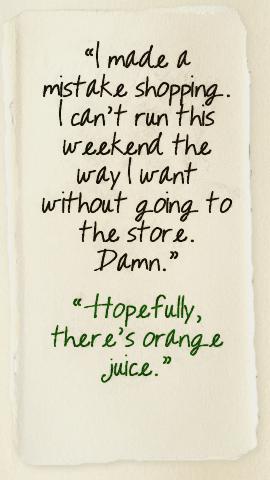 “I made a
mistake shopping.
I can't run this
weekend the
way I want
without going to
the store.
Damn.”
“Hopefully,
there's orange
juice.”